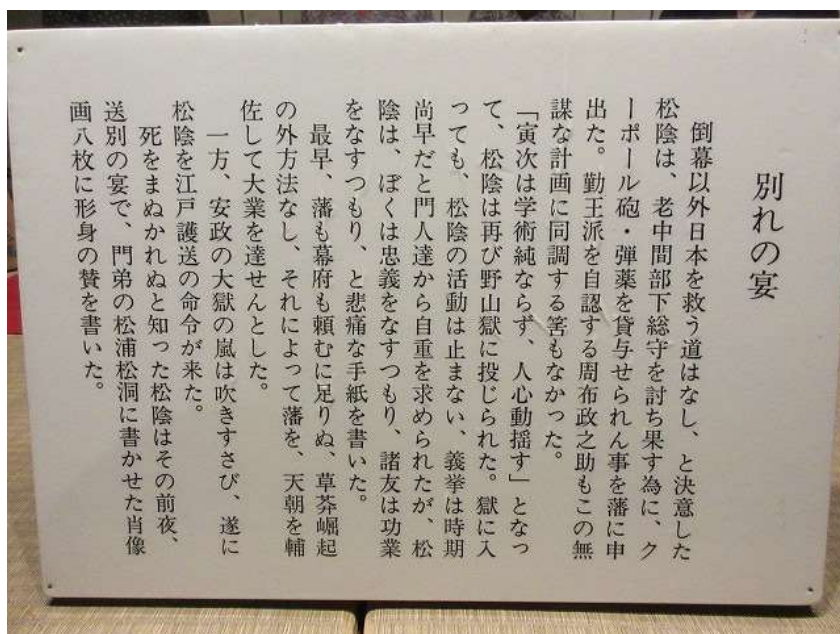 別れの宴
倒幕以外日本を救う道はなし、と決意した
松陰は、老中間部下総守を討ち果す為に、ク
ーポール砲・弾薬を貸与せられん事を藩に申
出た。勤王派を自認する周布政之助もこの無
謀な計画に同調する筈もなかった。
「寅次は学術純ならず、人心動揺す」となっ
て、松陰は再び野山獄に投じられた。獄に入
っても、松陰の活動は止まない、義挙は時期
尚早だと門人達から自重を求められたが、松
陰は、ぼくは忠義をなすつもり、諸友は功業
をなすつもり、と悲痛な手紙を書いた。
最早、藩も幕府も頼むに足りぬ、草莽崛起
の外方法なし、それによって藩を、天朝を輔
佐して大業を達せんとした。
一方、安政の大獄の嵐は吹きすさび、遂に
松陰を江戸護送の命令が来た。
死をまぬかれぬと知った松陰はその前夜、
送別の宴で、門弟の松浦松洞に書かせた肖像
画八枚に形身の賛を書いた。